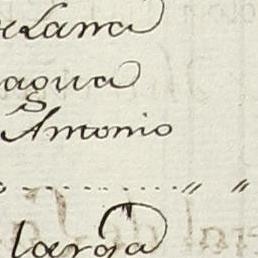 de Lana
agua
S Antonio
larga